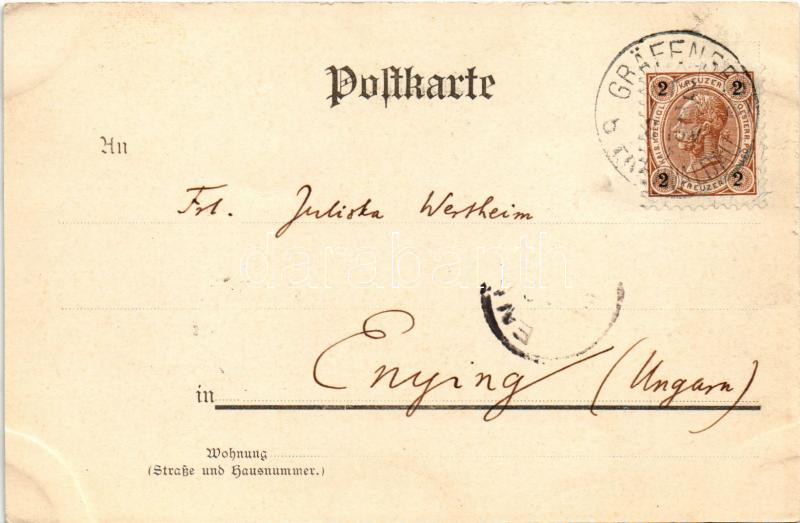 Postkarte
GRÄFENB
2 KREUZER 2
KAIS. KOENIGL. OESTERR.
2 KREUZER 2
An
Frl. Juliska Wertheim
darabanth
EN
Enying (Ungarn)
in
Wohnung
(Straße und Hausnummer.)